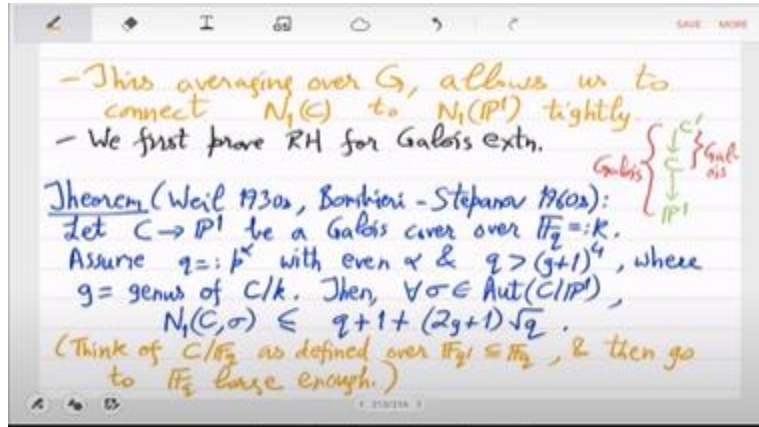 SAVE MORE
- This averaging over G, allows us to
connect N₁(C) to N₁(ℙ¹) tightly.
- We first prove RH for Galois extn.
Galois { C' ↓ C ↓ ℙ¹ } Galois
Theorem (Weil 1930s, Bombieri - Stepanov 1960s):
Let C → ℙ¹ be a Galois cover over 𝔽_q =: k.
Assume q =: p^α with even α & q > (g+1)⁴, where
g = genus of C/k. Then, ∀σ ∈ Aut(C/ℙ¹),
N₁(C,σ) ≤ q+1+(2g+1)√q.
(Think of C/𝔽_q as defined over 𝔽_q' ⊆ 𝔽_q, & then go
to 𝔽_q large enough.)